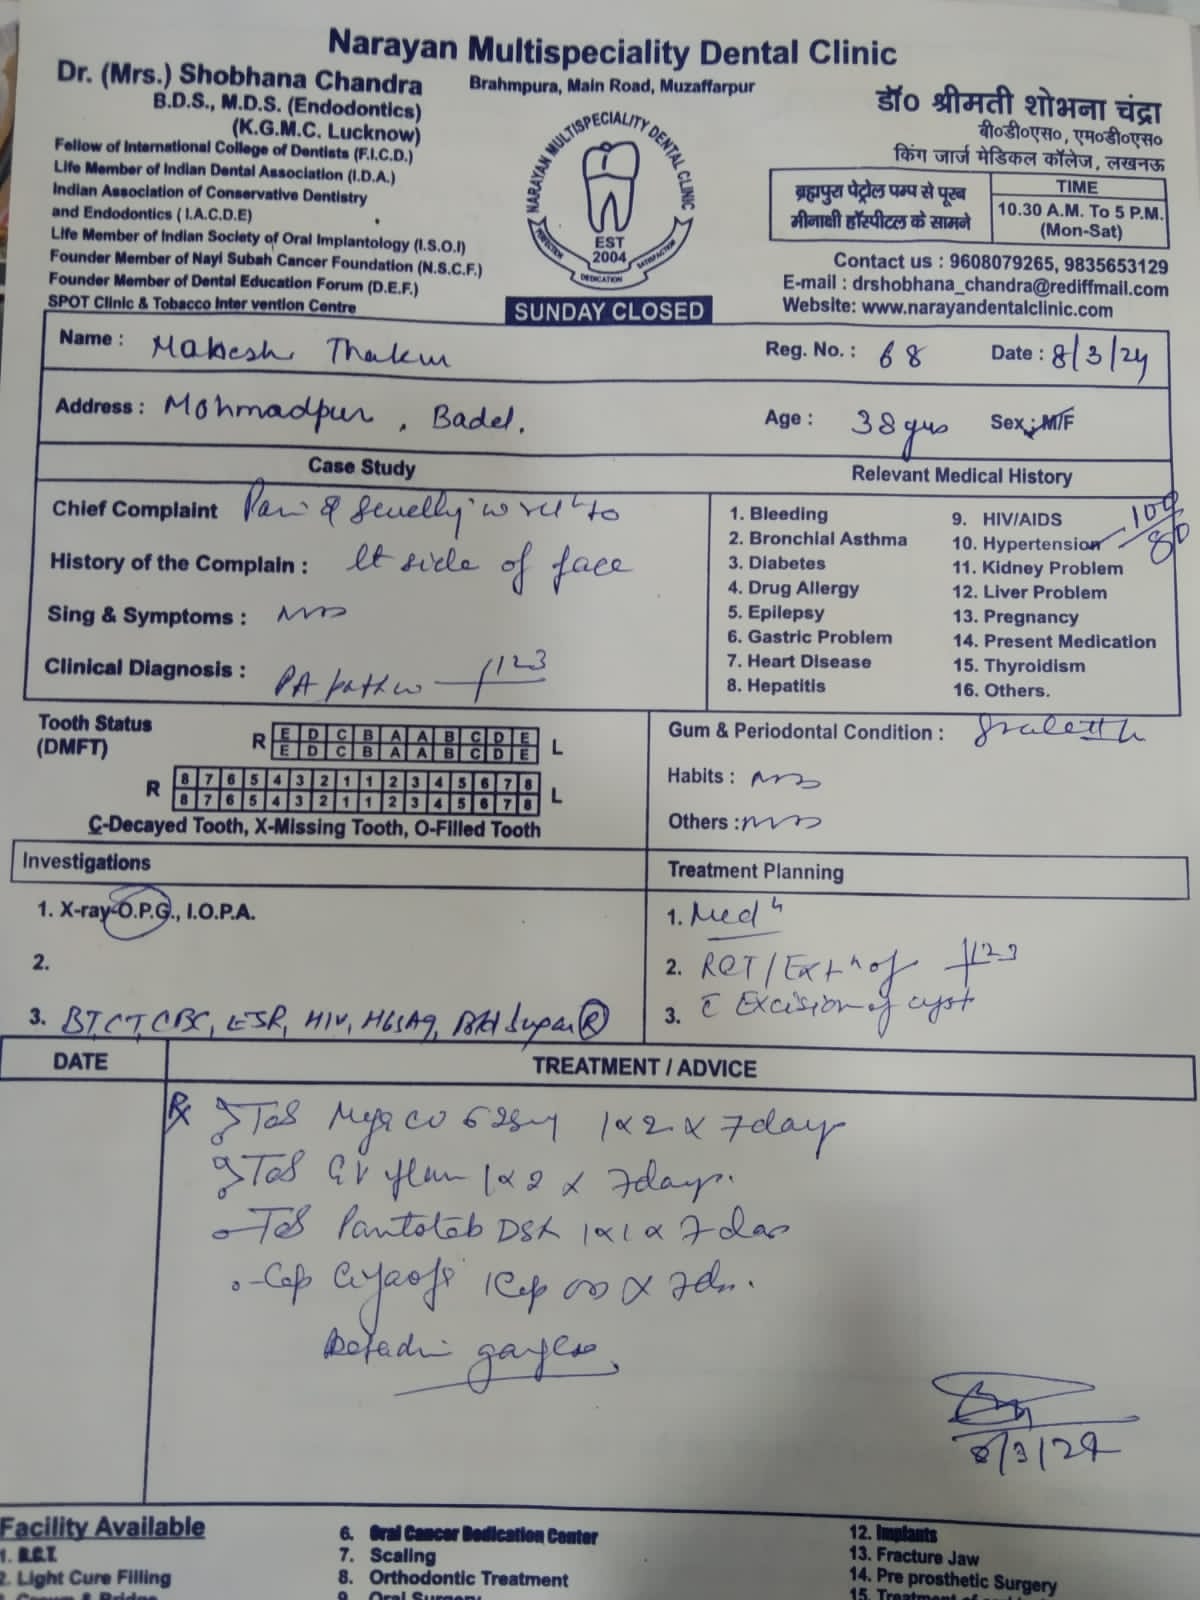 Narayan Multispeciality Dental Clinic
Brahmpura, Main Road, Muzaffarpur
Dr. (Mrs.) Shobhana Chandra
B.D.S., M.D.S. (Endodontics)
(K.G.M.C. Lucknow)
Fellow of International College of Dentists (F.I.C.D.)
Life Member of Indian Dental Association (I.D.A.)
Indian Association of Conservative Dentistry
and Endodontics ( I.A.C.D.E)
Life Member of Indian Society of Oral Implantology (I.S.O.I)
Founder Member of Nayi Subah Cancer Foundation (N.S.C.F.)
Founder Member of Dental Education Forum (D.E.F.)
SPOT Clinic & Tobacco Inter vention Centre
NARAYAN MULTISPECIALITY DENTAL CLINIC
EST
2004
PERFECTION DEDICATION SATISFACTION
SUNDAY CLOSED
डॉ० श्रीमती शोभना चंद्रा
बी०डी०एस०, एम०डी०एस०
किंग जार्ज मेडिकल कॉलेज, लखनऊ
ब्रह्मपुरा पेट्रोल पम्प से पूरब
मीनाक्षी हॉस्पीटल के सामने
TIME
10.30 A.M. To 5 P.M.
(Mon-Sat)
Contact us : 9608079265, 9835653129
E-mail : drshobhana_chandra@rediffmail.com
Website: www.narayandentalclinic.com
Name : Mahesh Thakur Reg. No. : 68 Date : 8/3/24
Address : Mohmadpur, Badel. Age : 38 yrs Sex : M/F
Case Study
Chief Complaint Pain & to
History of the Complain : lt side of face
Sing & Symptoms :
Clinical Diagnosis : PA 123
Relevant Medical History
1. Bleeding
2. Bronchial Asthma
3. Diabetes
4. Drug Allergy
5. Epilepsy
6. Gastric Problem
7. Heart Disease
8. Hepatitis
9. HIV/AIDS
10. Hypertension 100/80
11. Kidney Problem
12. Liver Problem
13. Pregnancy
14. Present Medication
15. Thyroidism
16. Others.
Tooth Status
(DMFT)
R E D C B A A B C D E L
E D C B A A B C D E
R 8 7 6 5 4 3 2 1 1 2 3 4 5 6 7 8 L
8 7 6 5 4 3 2 1 1 2 3 4 5 6 7 8
C-Decayed Tooth, X-Missing Tooth, O-Filled Tooth
Gum & Periodontal Condition :
Habits :
Others :
Investigations
1. X-ray-O.P.G., I.O.P.A.
2.
3. BT, CT, CBC, ESR, HIV, HbsAg, Bld Sugar (R)
Treatment Planning
1. Med
2. RCT / Extn of 123
3. c Excision of cyst
DATE
TREATMENT / ADVICE
Rx Tab 625mg 1x2x7days
Tab flam 1x2x7days.
Tab Pantotab DSR 1x1x7das
Cap 1Cap OD x 7ds.
Betadin gargles
8/3/24
Facility Available
1. R.C.T.
2. Light Cure Filling
3. Crown & Bridge
6. Oral Cancer Dedication Center
7. Scaling
8. Orthodontic Treatment
9. Oral Surgery
12. Implants
13. Fracture Jaw
14. Pre prosthetic Surgery
15. Treatment of